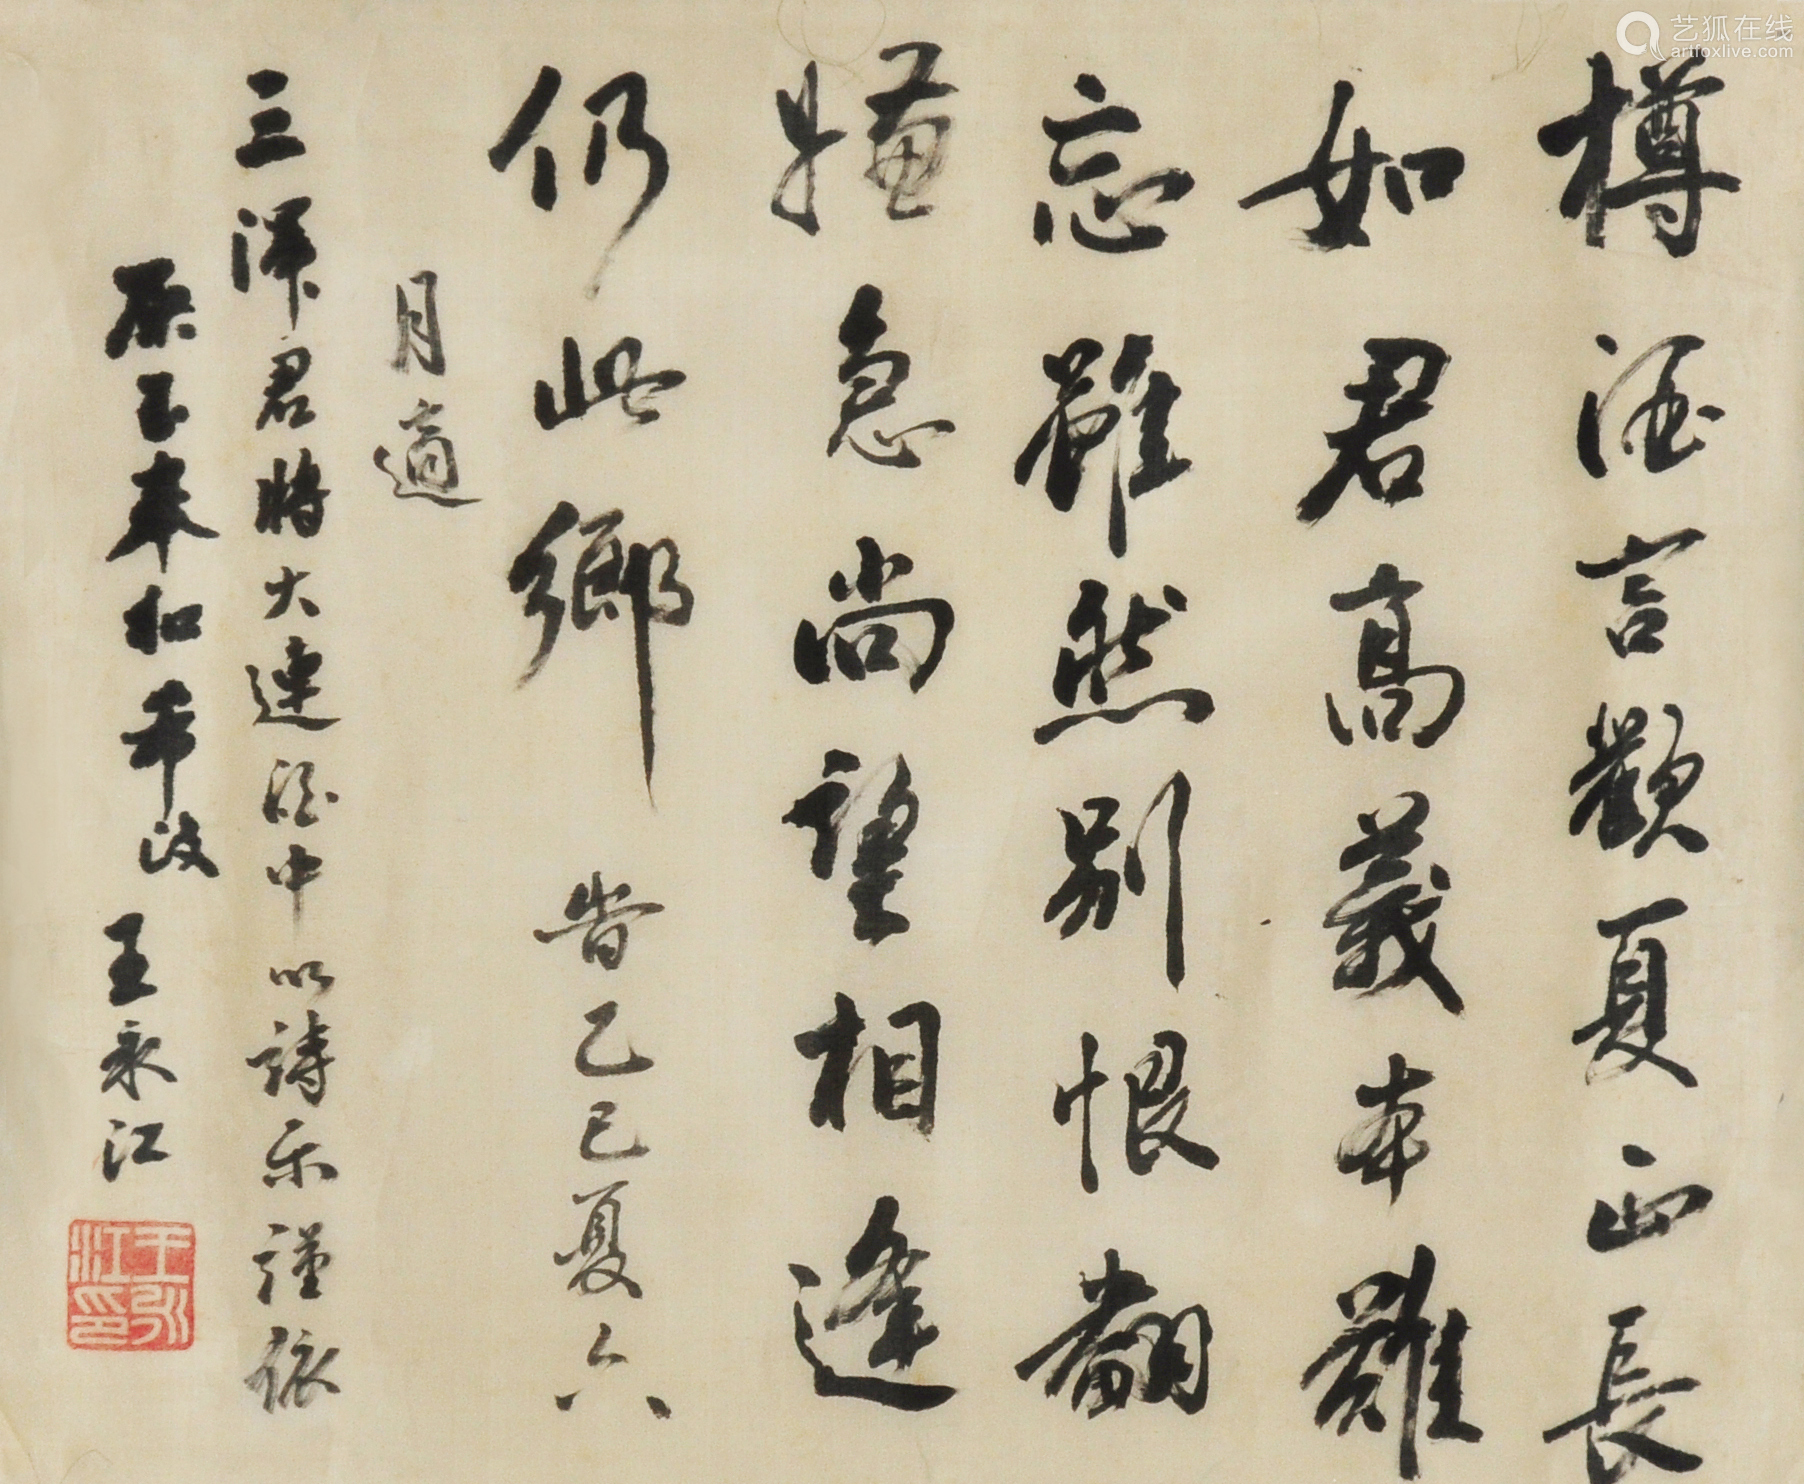 艺狐在线
artfoxlive.com
樽酒言歡夏正長
如君高義本難
忘雖然別恨翻
嫌急尚望相逢
仍此鄉 旹乙巳夏六
月適
三澤君將大連酒中以詩示謹依
原玉奉和希政 王永江
王永江印